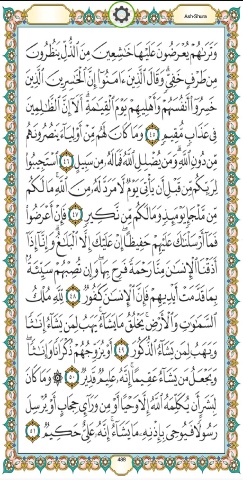 Ash-Shura
وَتَرَىٰهُمْ يُعْرَضُونَ عَلَيْهَا خَٰشِعِينَ مِنَ ٱلذُّلِّ يَنظُرُونَ
مِن طَرْفٍ خَفِيٍّ وَقَالَ ٱلَّذِينَ ءَامَنُوٓا۟ إِنَّ ٱلْخَٰسِرِينَ ٱلَّذِينَ
خَسِرُوٓا۟ أَنفُسَهُمْ وَأَهْلِيهِمْ يَوْمَ ٱلْقِيَٰمَةِ أَلَآ إِنَّ ٱلظَّٰلِمِينَ
فِى عَذَابٍ مُّقِيمٍ ٤٥ وَمَا كَانَ لَهُم مِّنْ أَوْلِيَآءَ يَنصُرُونَهُم
مِّن دُونِ ٱللَّهِ وَمَن يُضْلِلِ ٱللَّهُ فَمَا لَهُۥ مِن سَبِيلٍ ٤٦ ٱسْتَجِيبُوا۟
لِرَبِّكُم مِّن قَبْلِ أَن يَأْتِىَ يَوْمٌ لَّا مَرَدَّ لَهُۥ مِنَ ٱللَّهِ مَا لَكُم
مِّن مَّلْجَإٍ يَوْمَئِذٍ وَمَا لَكُم مِّن نَّكِيرٍ ٤٧ فَإِنْ أَعْرَضُوا۟
فَمَآ أَرْسَلْنَٰكَ عَلَيْهِمْ حَفِيظًا إِنْ عَلَيْكَ إِلَّا ٱلْبَلَٰغُ وَإِنَّآ إِذَآ
أَذَقْنَا ٱلْإِنسَٰنَ مِنَّا رَحْمَةً فَرِحَ بِهَا وَإِن تُصِبْهُمْ سَيِّئَةٌۢ
بِمَا قَدَّمَتْ أَيْدِيهِمْ فَإِنَّ ٱلْإِنسَٰنَ كَفُورٌ ٤٨ لِّلَّهِ مُلْكُ
ٱلسَّمَٰوَٰتِ وَٱلْأَرْضِ يَخْلُقُ مَا يَشَآءُ يَهَبُ لِمَن يَشَآءُ إِنَٰثًا
وَيَهَبُ لِمَن يَشَآءُ ٱلذُّكُورَ ٤٩ أَوْ يُزَوِّجُهُمْ ذُكْرَانًا وَإِنَٰثًا
وَيَجْعَلُ مَن يَشَآءُ عَقِيمًا إِنَّهُۥ عَلِيمٌ قَدِيرٌ ٥٠ ۞ وَمَا كَانَ
لِبَشَرٍ أَن يُكَلِّمَهُ ٱللَّهُ إِلَّا وَحْيًا أَوْ مِن وَرَآئِ حِجَابٍ أَوْ يُرْسِلَ
رَسُولًا فَيُوحِىَ بِإِذْنِهِۦ مَا يَشَآءُ إِنَّهُۥ عَلِىٌّ حَكِيمٌ ٥١
488